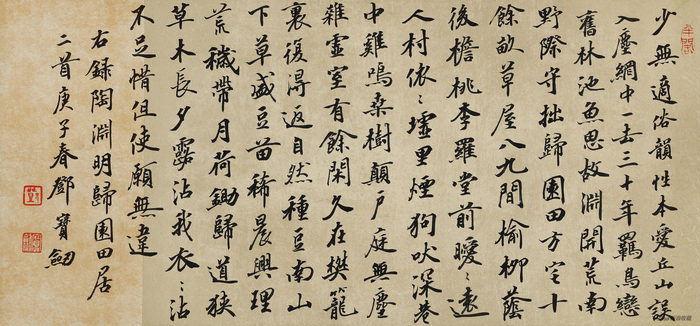 少無適俗韻性本愛丘山誤
入塵網中一去三十年羈鳥戀
舊林池魚思故淵開荒南
野際守拙歸園田方宅十
餘畝草屋八九間榆柳蔭
後檐桃李羅堂前曖〻遠
人村依〻墟里煙狗吠深巷
中雞鳴桑樹顛戶庭無塵
雜虛室有餘閑久在樊籠
裏復得返自然種豆南山
下草盛豆苗稀晨興理
荒穢帶月荷鋤歸道狹
草木長夕露沾我衣〻沾
不足惜但使願無違
右錄陶淵明歸園田居
二首庚子春鄧寶劒